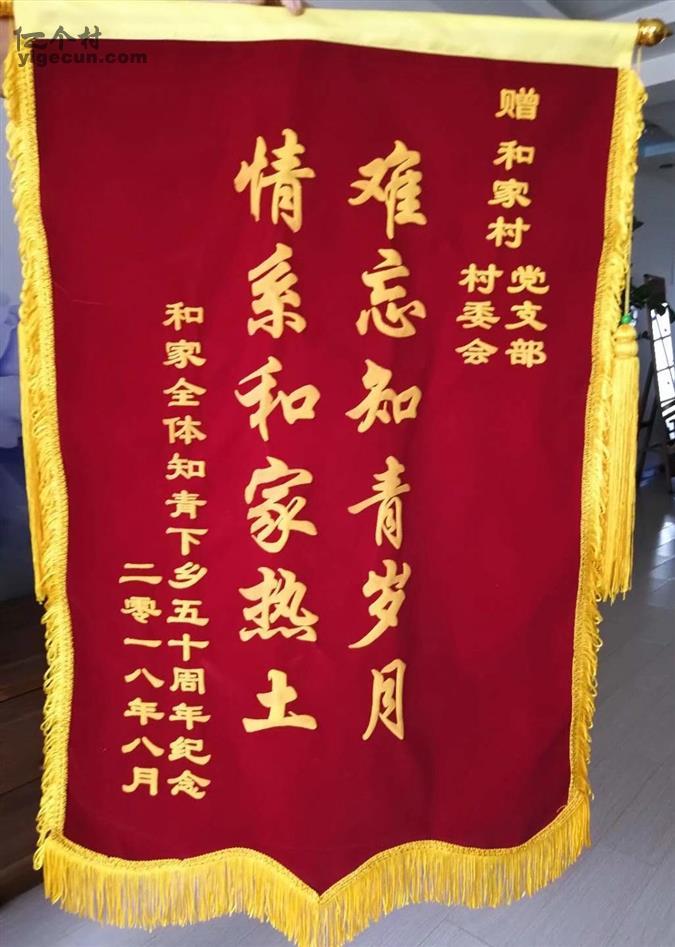 亿个村
yigecun.com
赠 和家村 党支部
村委会
难忘知青岁月
情系和家热土
和家全体知青下乡五十周年纪念
二零一八年八月